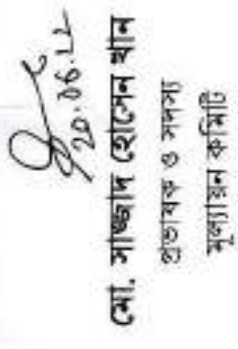 20.06.22
মো. সাজ্জাদ হোসেন খান
প্রভাষক ও সদস্য
মূল্যায়ন কমিটি